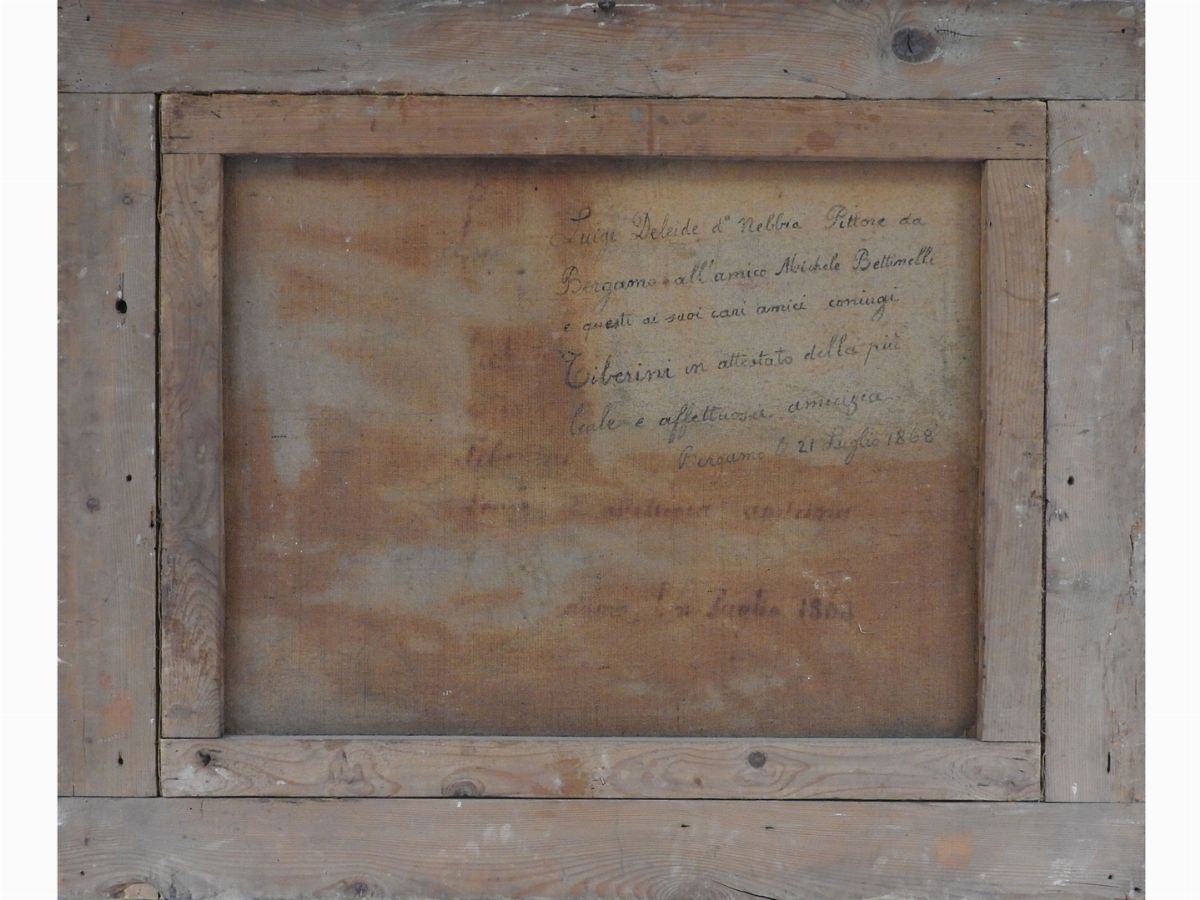 Luigi Deleide d.º Nebbia Pittore da
Bergamo all'amico Michele Bettinelli
e questi ai suoi cari amici coniugi
Tiberini in attestato della più
leale e affettuosa amicizia
Bergamo li 21 Luglio 1868
luglio 1868